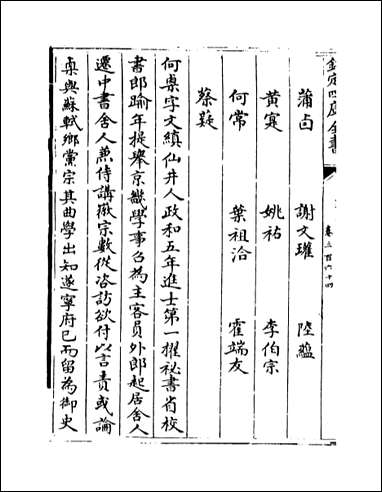 欽定四庫全書
卷三百六十四
蒲卣　謝文瓘　陸蘊
黃寔　姚祐　李伯宗
何常　葉祖洽　霍端友
蔡薿
何㮚字文縝仙井人政和五年進士第一擢祕書省校
書郎踰年提舉京畿學事召為主客員外郎起居舍人
遷中書舍人兼侍講徽宗數從咨訪欲付以言責或論
㮚與蘇軾鄉黨宗其曲學出知遂寧府已而留為御史